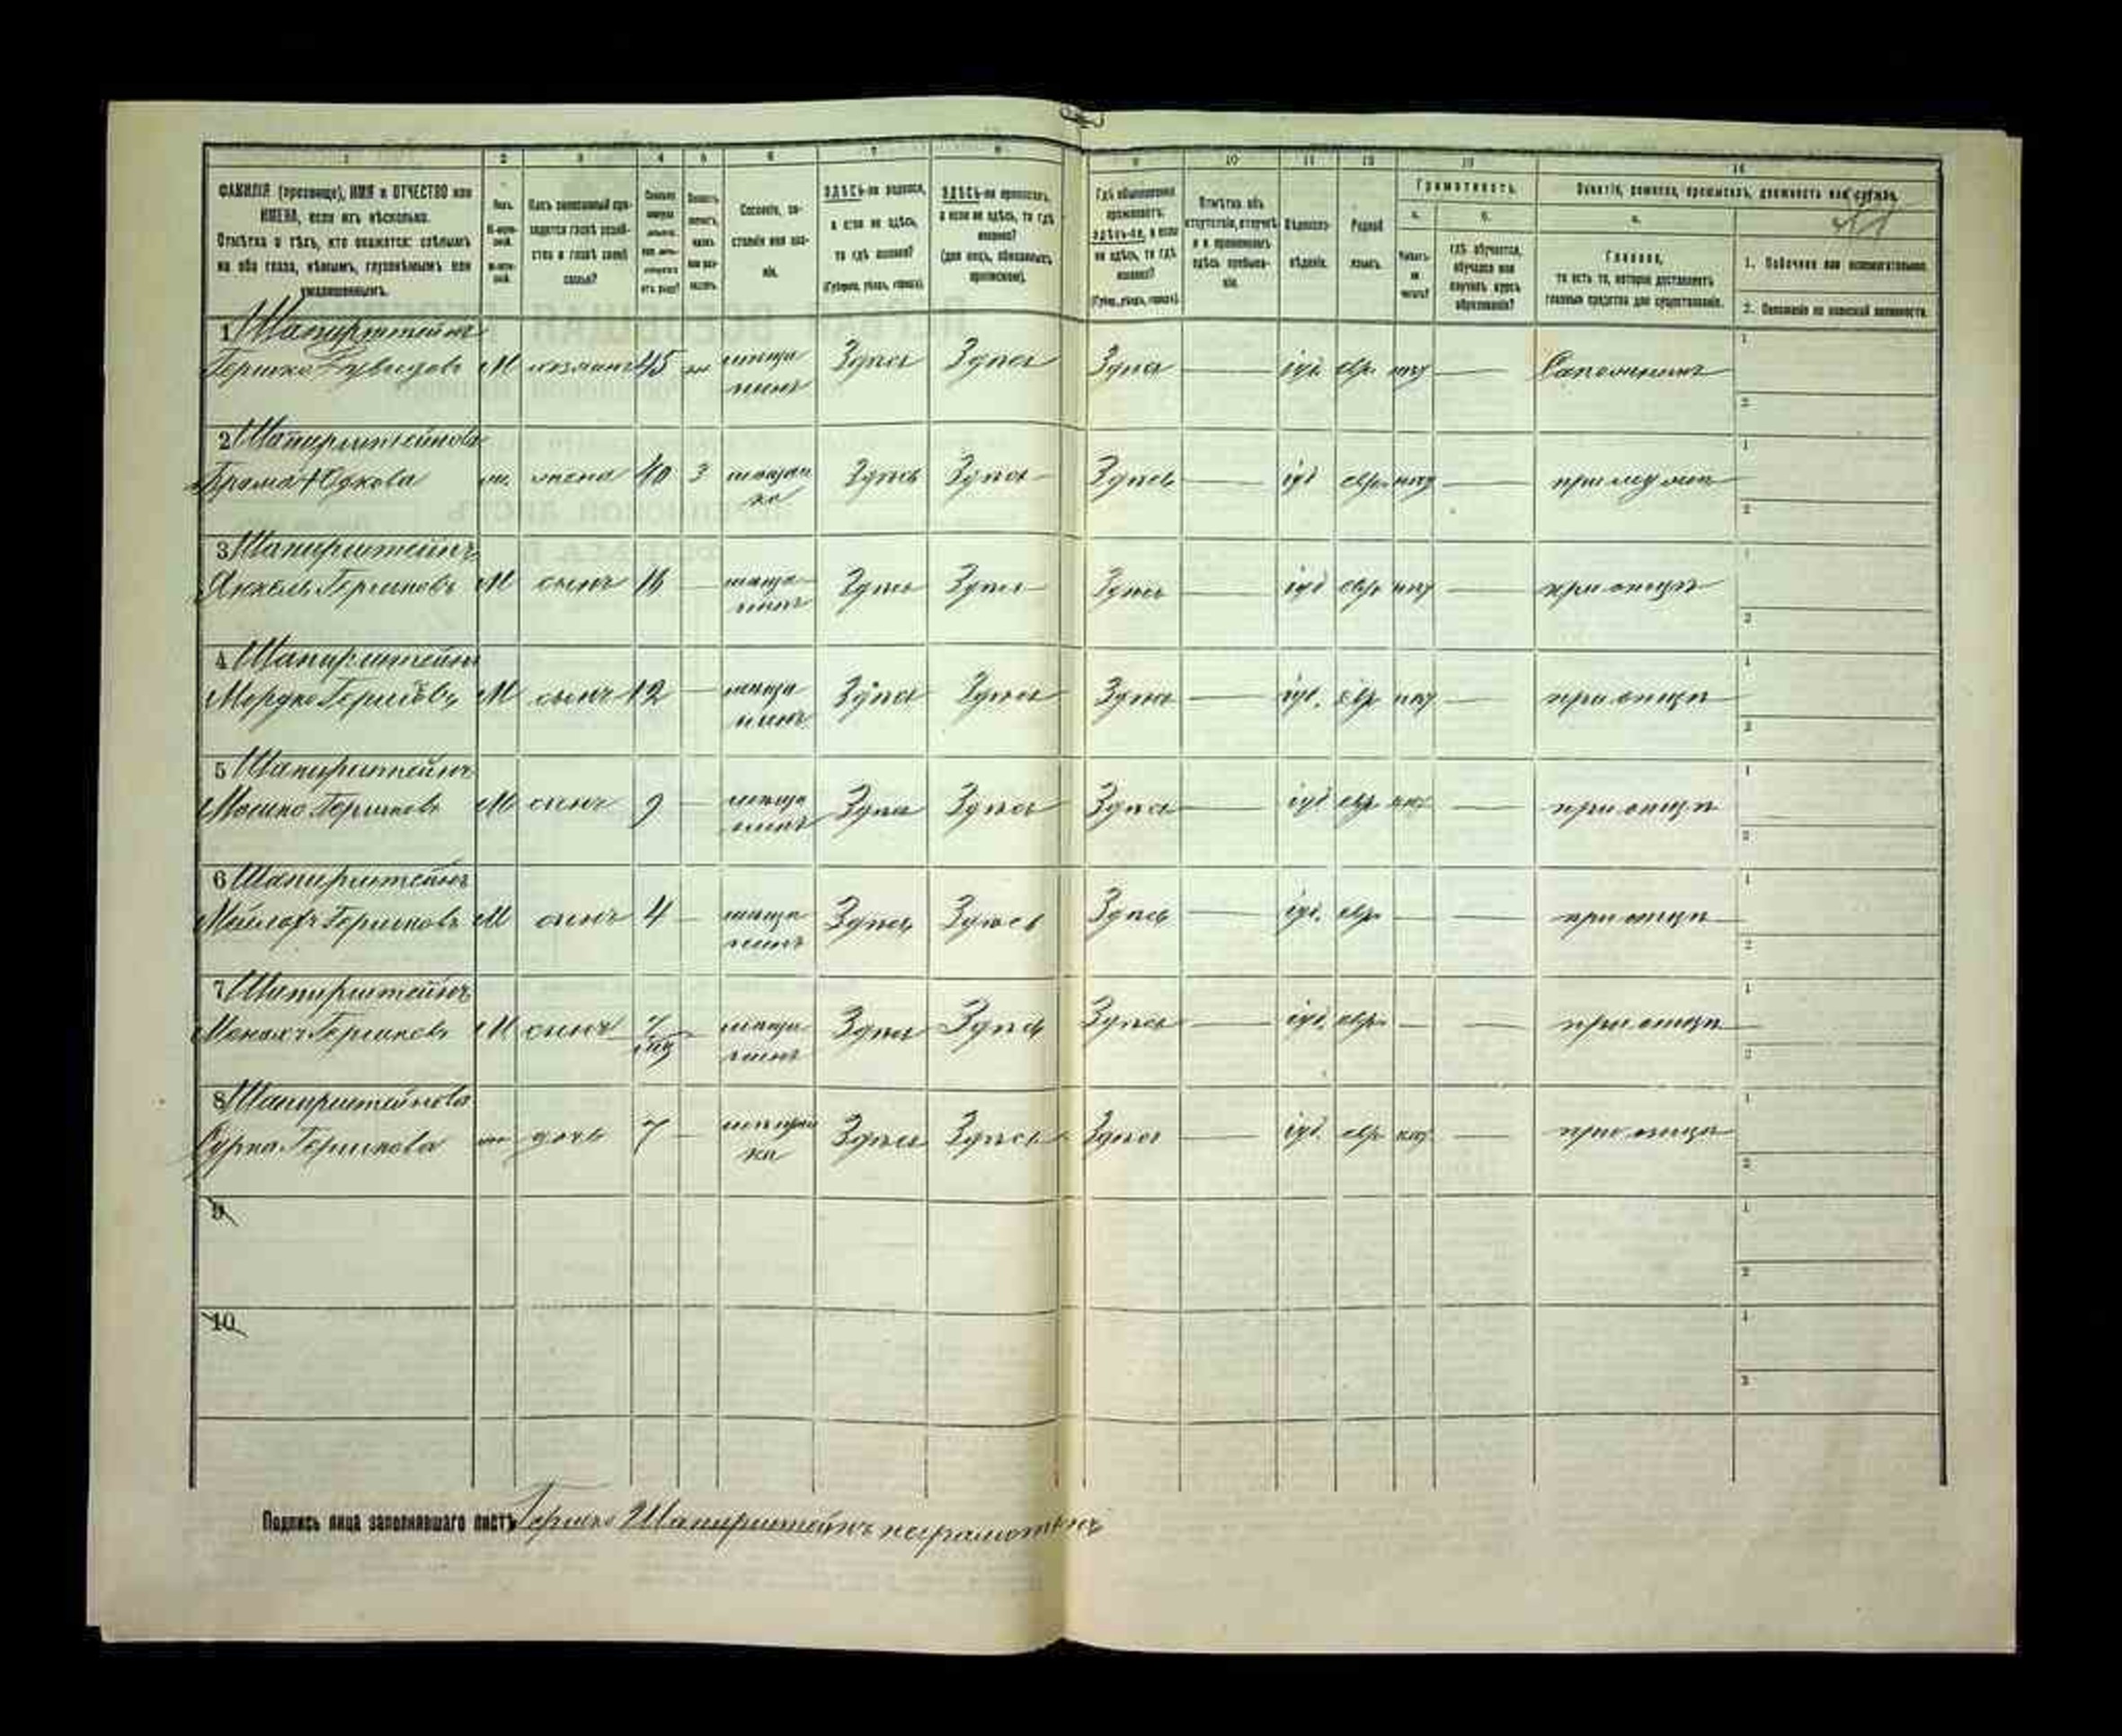 1 2 3 4 5 6 7 8 9 10 11 12 13 14
ФАМИЛІЯ (прозвище), ИМЯ и ОТЧЕСТВО или
ИМЕНА, если ихъ нѣсколько.
Отмѣтка о тѣхъ, кто окажется: слѣпымъ
на оба глаза, нѣмымъ, глухонѣмымъ или
умалишеннымъ.
Полъ.
Какъ записанный при-
ходится главѣ хозяй-
ства и главѣ своей
семьи?
Сословіе, со-
стояніе или зва-
ніе.
ЗДѢСЬ-ли родился,
а если не здѣсь,
то гдѣ именно?
(Губернія, уѣздъ, городъ).
ЗДѢСЬ-ли приписанъ,
а если не здѣсь, то гдѣ
именно?
(для лицъ, обязанныхъ
припискою).
Гдѣ обыкновенно
проживаетъ:
здѣсь-ли, а если
не здѣсь, то гдѣ
именно?
(Губер., уѣздъ, городъ).
Отмѣтка объ
отсутствіи, отлучкѣ
и о временномъ
здѣсь пребыва-
ніи.
Вѣроиспо-
вѣданіе.
Родной
языкъ.
Грамотность.
а. б.
Умѣетъ-
ли
читать?
гдѣ обучается,
обучался или
кончилъ курсъ
образованія?
Занятіе, ремесло, промыселъ, должность или служба.
а.
Главное,
то есть то, которое доставляетъ
главныя средства для существованія.
1. Побочное или вспомогательное.
2. Положеніе по воинской повинности.
1 Шапирштейнъ
Гершко Дувидовъ М хозяинъ 45 ж мѣща
нинъ Здѣсь Здѣсь Здѣсь — іуд. евр. нѣтъ — Сапожникъ
2 Шапирштейнова
Юдкова ж. жена 40 3 мѣщан
ка Здѣсь Здѣсь Здѣсь — іуд. евр. нѣтъ — при мужѣ
3 Шапирштейнъ
Янкель Гершковъ М сынъ 16 — мѣща
нинъ Здѣсь Здѣсь Здѣсь — іуд. евр. нѣтъ — при отцѣ
4 Шапирштейнъ
Мордко Гершковъ М сынъ 12 — мѣща
нинъ Здѣсь Здѣсь Здѣсь — іуд. евр. нѣтъ — при отцѣ
5 Шапирштейнъ
Мошко Гершковъ М сынъ 9 — мѣща
нинъ Здѣсь Здѣсь Здѣсь — іуд. евр. нѣтъ — при отцѣ
6 Шапирштейнъ
Мейлахъ Гершковъ М сынъ 4 — мѣща
нинъ Здѣсь Здѣсь Здѣсь — іуд. евр. — — при отцѣ
7 Шапирштейнъ
Монахъ Гершковъ М сынъ мѣща
нинъ Здѣсь Здѣсь Здѣсь — іуд. евр. — — при отцѣ
8 Шапирштейнова
Сурка Гершкова ж дочь 7 — мѣщан
ка Здѣсь Здѣсь Здѣсь — іуд. евр. нѣтъ — при отцѣ
9
10
Подпись лица заполнявшаго листъ Гершко Шапирштейнъ неграмотенъ